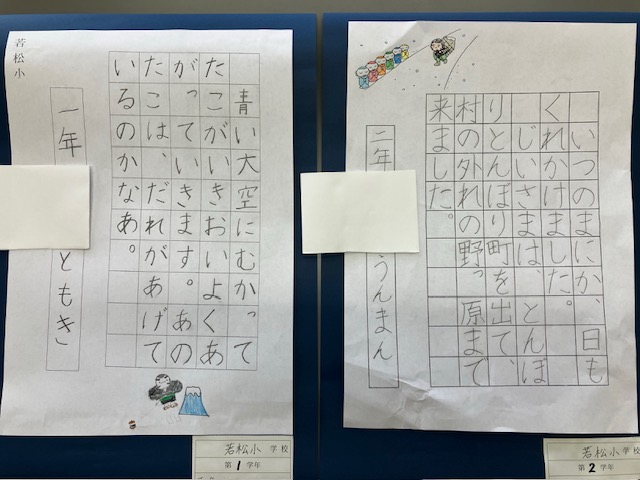 青い大空にむかって
たこがいきおいよくあ
がっていきます。あの
たこは、だれがあげて
いるのかなあ。
一年 ともき
若松小
若松小学校
第1学年
いつのまにか、日も
くれかけました。
じいさまは、とんぼ
りとんぼり町を出て、
村の外れの野っ原まで
来ました。
二年 うんまん
若松小学校
第2学年